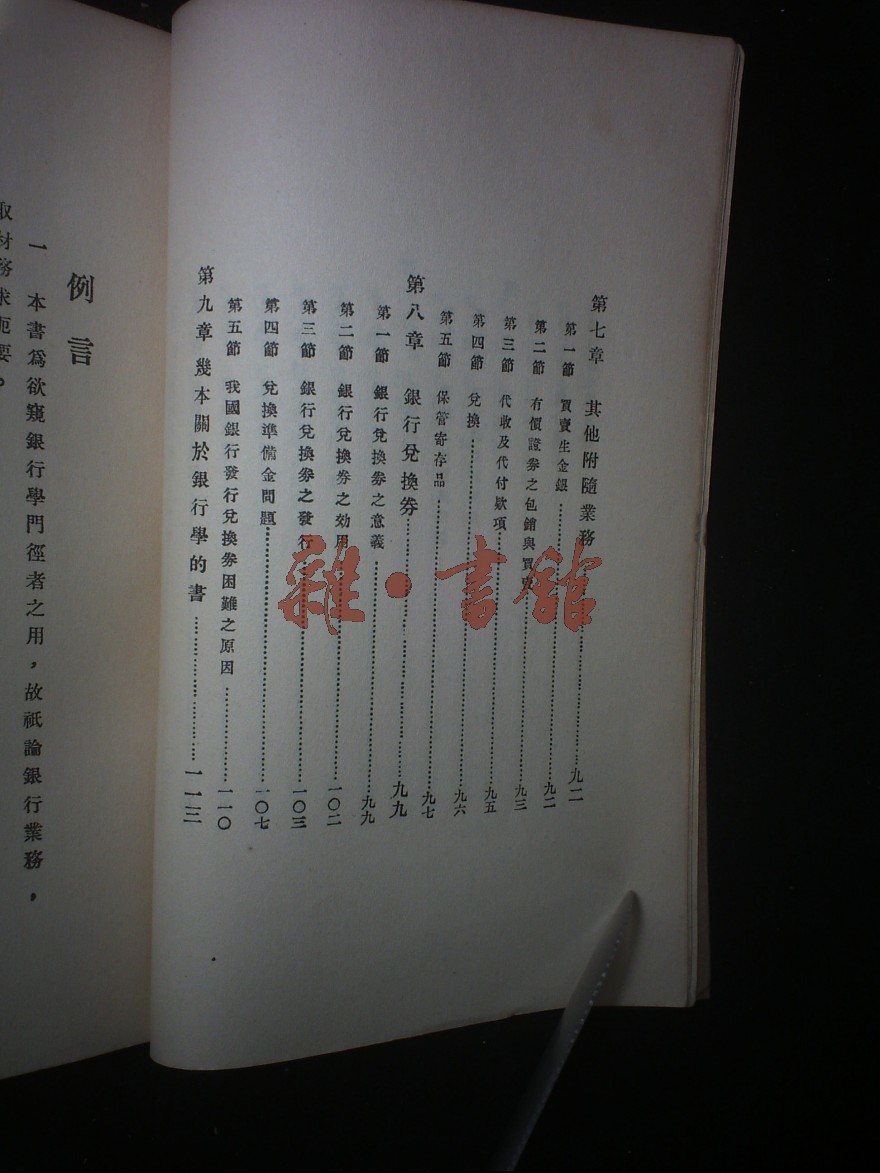 第七章　其他附隨業務……九二
第一節　買賣生金銀……九二
第二節　有價證券之包銷與買賣……九三
第三節　代收及代付款項……九五
第四節　兌換……九六
第五節　保管寄存品……九七
第八章　銀行兌換券……九九
第一節　銀行兌換券之意義……九九
第二節　銀行兌換券之効用……一〇二
第三節　銀行兌換券之發行……一〇三
第四節　兌換準備金問題……一〇七
第五節　我國銀行發行兌換券困難之原因……一一〇
第九章　幾本關於銀行學的書……一一三
例言
一　本書爲欲窺銀行學門徑者之用，故祇論銀行業務，
取材務求扼要。
雜·書館